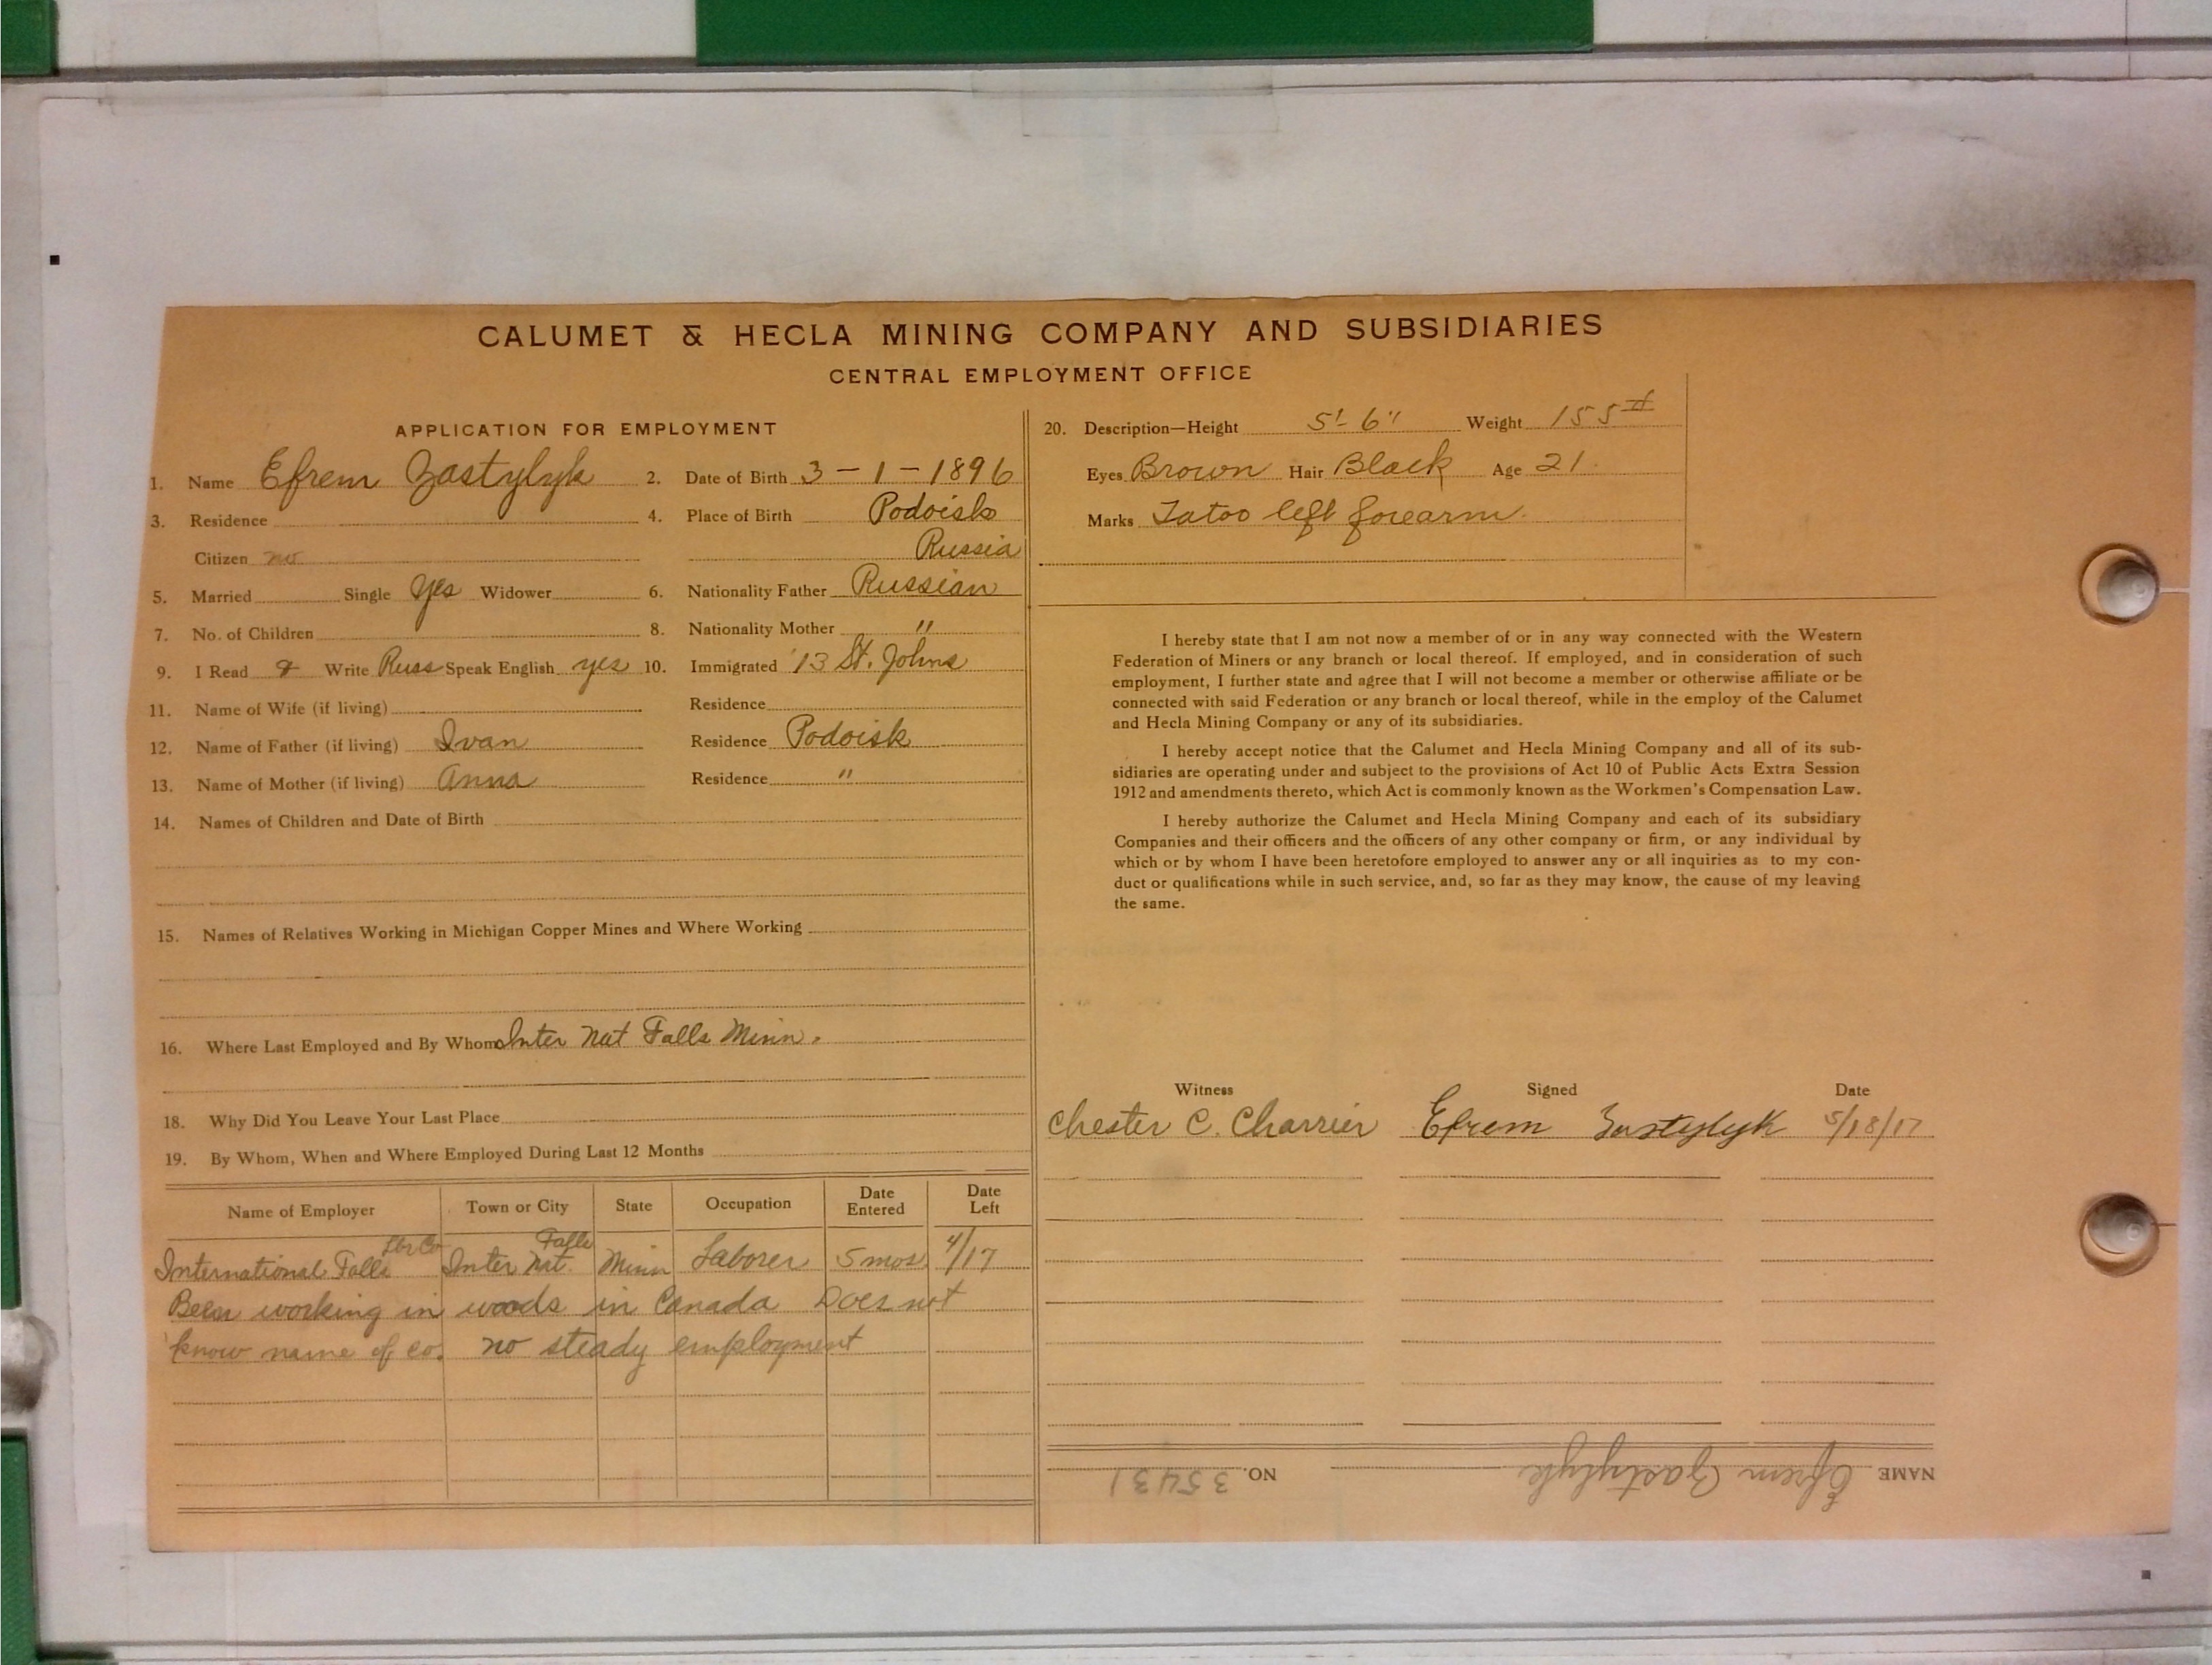 CALUMET & HECLA MINING COMPANY AND SUBSIDIARIES
CENTRAL EMPLOYMENT OFFICE
APPLICATION FOR EMPLOYMENT
1. Name Efrem Zastylyk 2. Date of Birth 3 - 1 - 1896
3. Residence 4. Place of Birth Podoisk
Citizen no Russia
5. Married Single Yes Widower 6. Nationality Father Russian
7. No. of Children 8. Nationality Mother "
9. I Read & Write Russ Speak English yes 10. Immigrated '13 St. Johns
11. Name of Wife (if living) Residence
12. Name of Father (if living) Ivan Residence Podoisk
13. Name of Mother (if living) Anna Residence "
14. Names of Children and Date of Birth
15. Names of Relatives Working in Michigan Copper Mines and Where Working
16. Where Last Employed and By Whom Inter Nat Falls Minn.
18. Why Did You Leave Your Last Place
19. By Whom, When and Where Employed During Last 12 Months
Name of Employer Town or City State Occupation Date Entered Date Left
International Falls Lbr Co Inter Nat. Falls Minn Laborer 5 mos 4/17
Been working in woods in Canada Does not
know name of co. no steady employment
20. Description—Height 5'- 6" Weight 155 #
Eyes Brown Hair Black Age 21.
Marks Tatoo left forearm.
I hereby state that I am not now a member of or in any way connected with the Western
Federation of Miners or any branch or local thereof. If employed, and in consideration of such
employment, I further state and agree that I will not become a member or otherwise affiliate or be
connected with said Federation or any branch or local thereof, while in the employ of the Calumet
and Hecla Mining Company or any of its subsidiaries.
I hereby accept notice that the Calumet and Hecla Mining Company and all of its sub-
sidiaries are operating under and subject to the provisions of Act 10 of Public Acts Extra Session
1912 and amendments thereto, which Act is commonly known as the Workmen's Compensation Law.
I hereby authorize the Calumet and Hecla Mining Company and each of its subsidiary
Companies and their officers and the officers of any other company or firm, or any individual by
which or by whom I have been heretofore employed to answer any or all inquiries as to my con-
duct or qualifications while in such service, and, so far as they may know, the cause of my leaving
the same.
Witness Signed Date
Chester C. Charrier Efrem Zastylyk 5/18/17
NAME Efrem Zastylyk NO. 35431